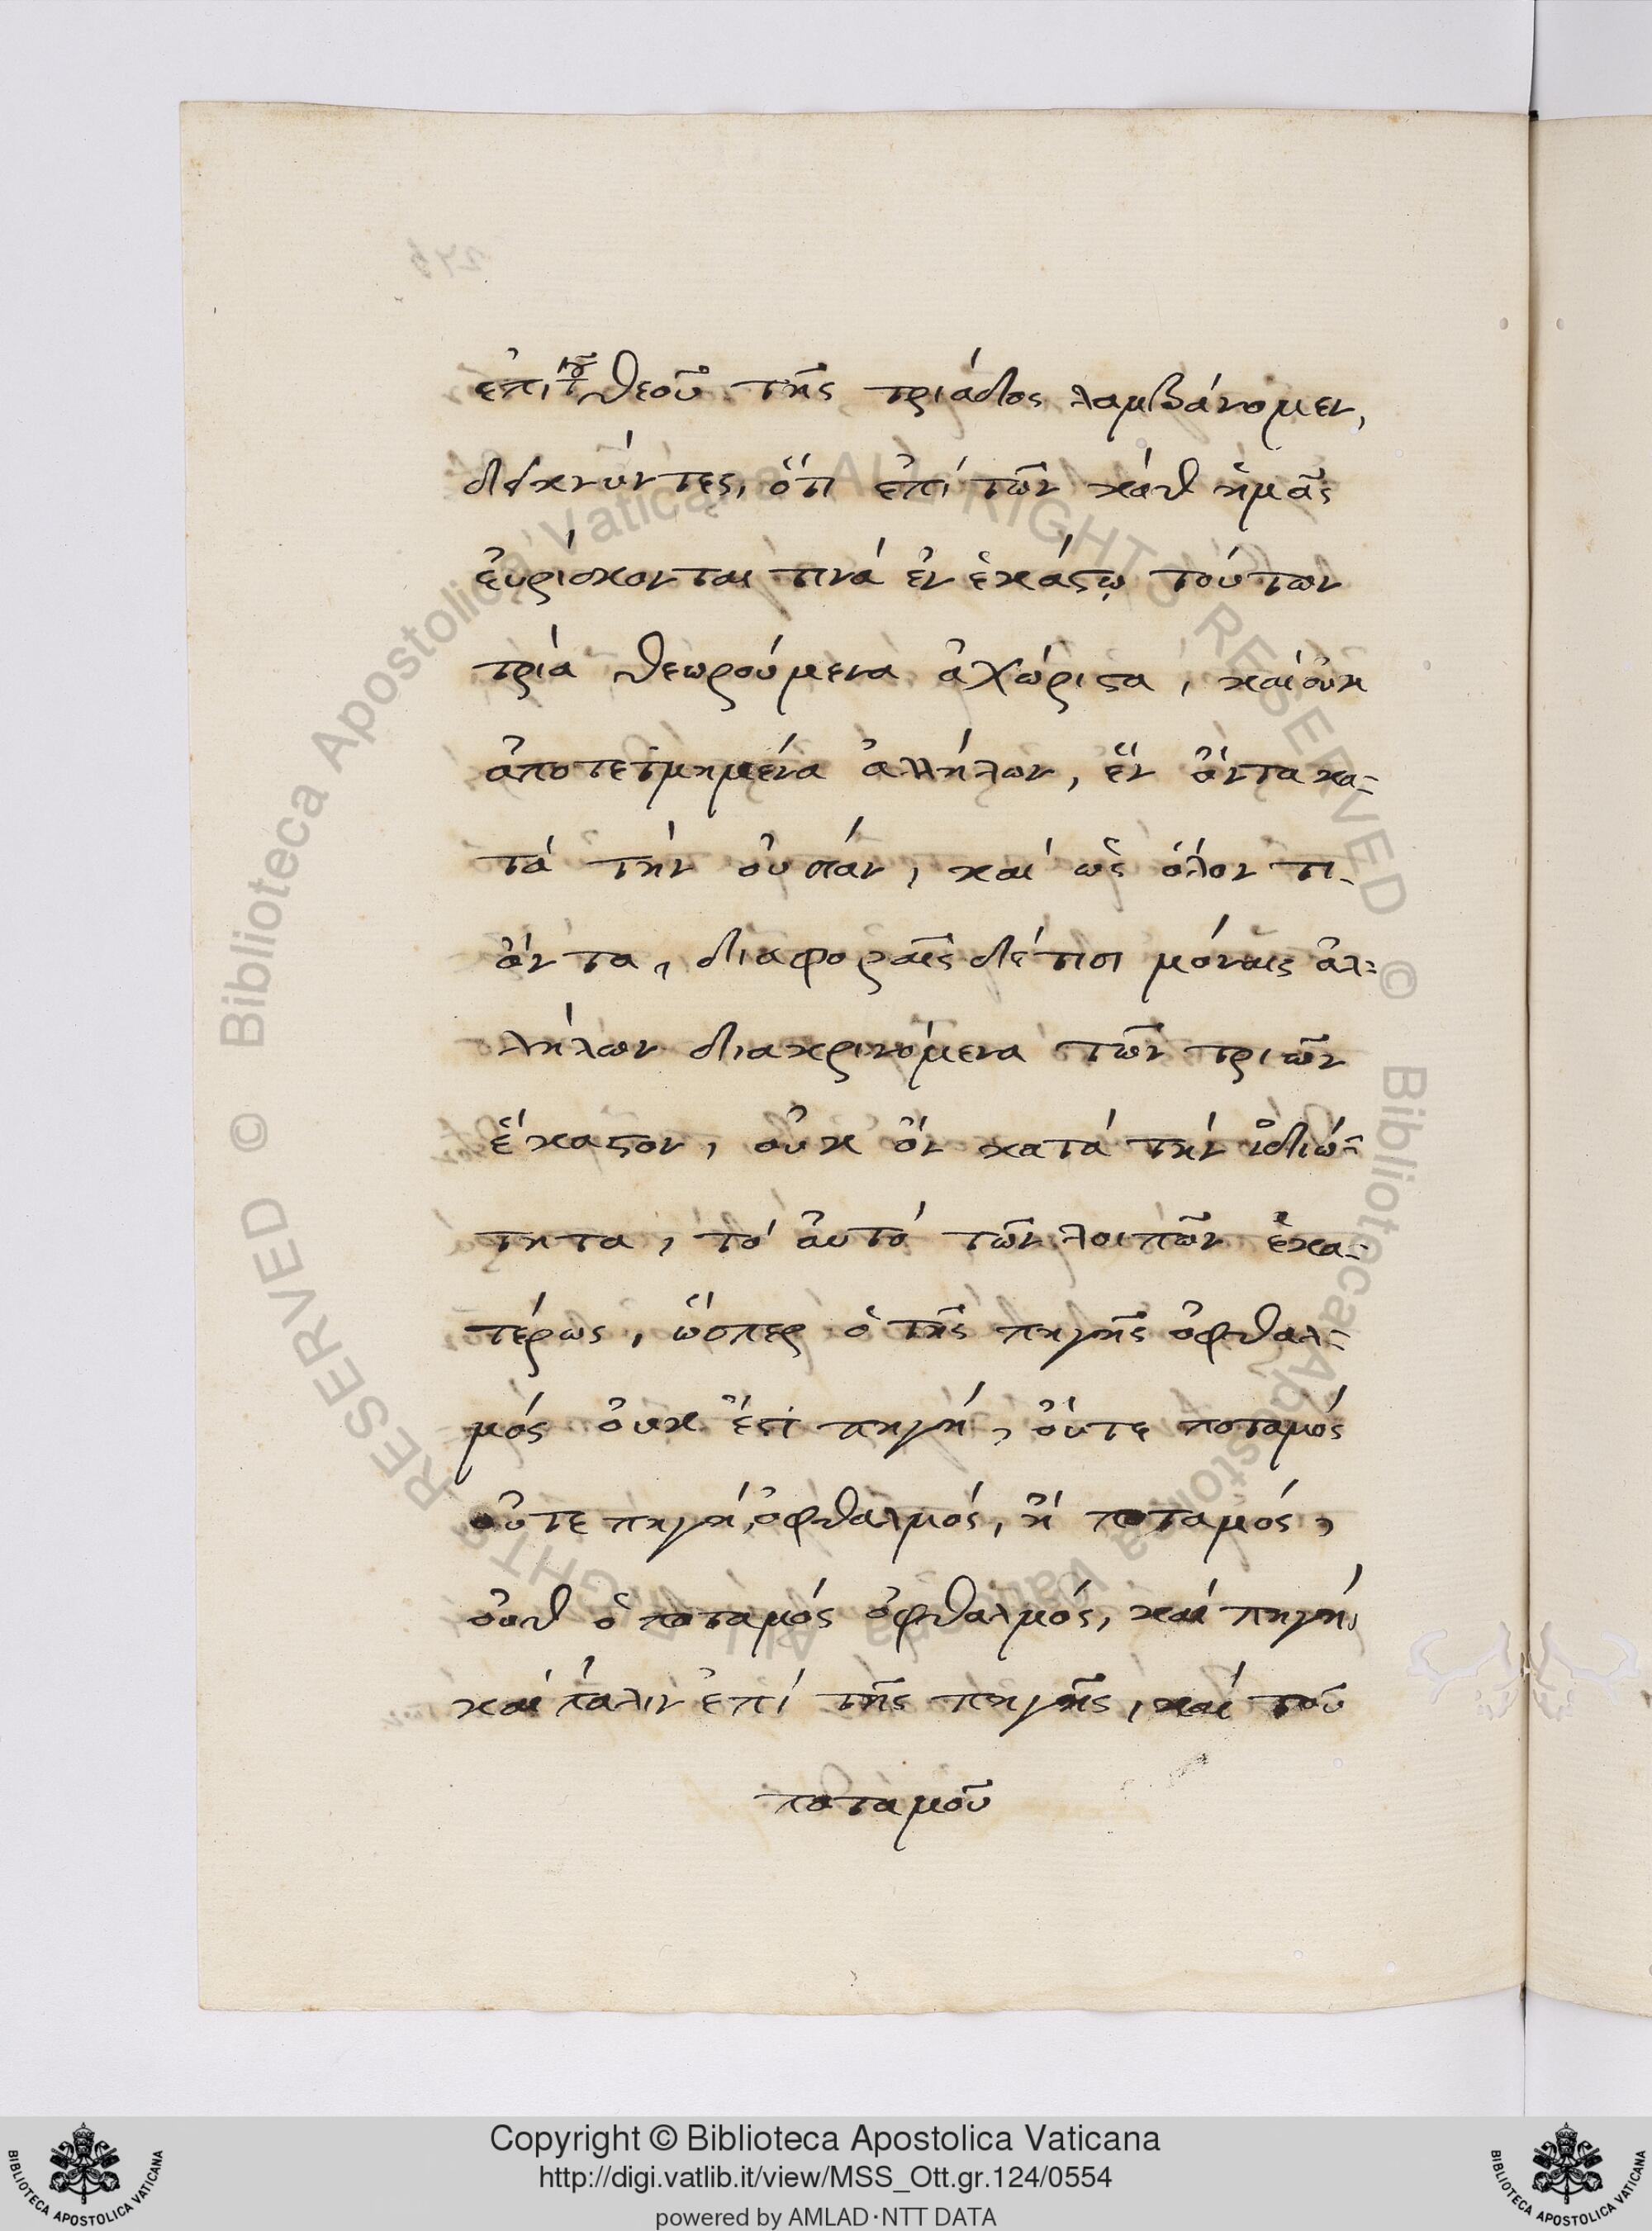 ἐπὶ τοῦ θεοῦ τῆς τριάδος λαμβάνομεν,
δεικνύντες, ὅτι ἐπὶ τῶν κάθ ἡμᾶς
εὑρίσκονται τινὰ ἐν ἑκάστῳ τούτων
τρία θεωρούμενα ἀχώριστα, καὶ οὐκ
ἀποτετμημένα ἀλλήλων, ἓν ὄντα κα-
τὰ τὴν οὐσίαν, καὶ ὡς ὅλον τι
ὄντα, διαφοραῖς δέ τισι μόναις ἀλ-
λήλων διακρινόμενα τῶν τριῶν
ἕκαστον, οὐκ ὂν κατὰ τὴν ἰδιώ-
τητα, τὸ αὐτὸ τῶν λοιπῶν ἑκα-
τέρως, ὥσπερ ὁ τῆς πηγῆς ὀφθαλ-
μός οὐκ ἔστι πηγή, οὔτε ποταμός
οὔτε πηγή, ὀφθαλμός, ἢ ποταμός,
οὐθ ὁ ποταμός ὀφθαλμός, καὶ πηγή,
καὶ πάλιν ἐπὶ τῆς πηγῆς, καὶ τοῦ
ποταμοῦ
Biblioteca Apostolica Vaticana ALL RIGHTS RESERVED ©
Biblioteca Apostolica Vaticana ALL RIGHTS RESERVED ©
Copyright © Biblioteca Apostolica Vaticana
http://digi.vatlib.it/view/MSS_Ott.gr.124/0554
powered by AMLAD·NTT DATA
BIBLIOTECA APOSTOLICA VATICANA
BIBLIOTECA APOSTOLICA VATICANA